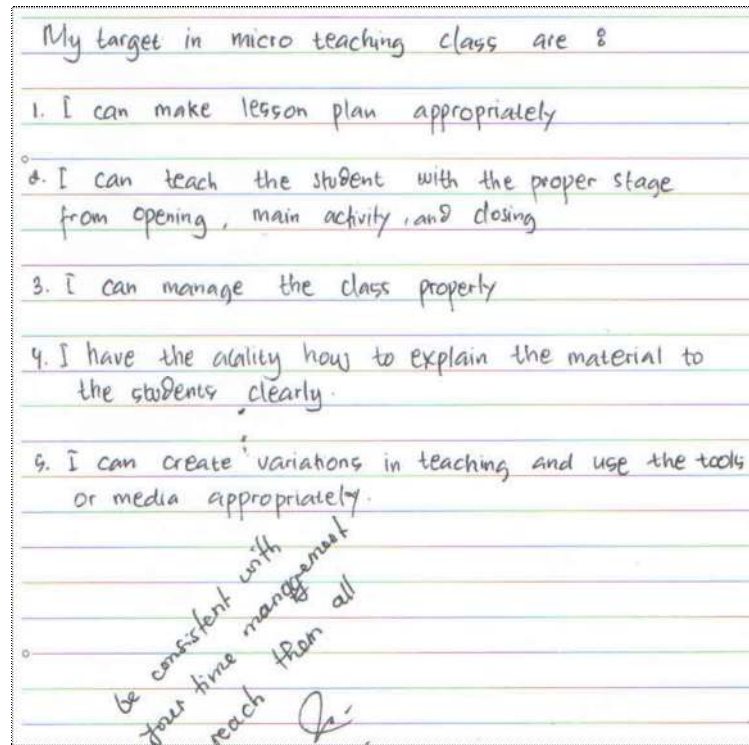 My target in micro teaching class are :
1. I can make lesson plan appropriately
2. I can teach the student with the proper stage
from opening, main activity, and closing
3. I can manage the class properly
4. I have the ability how to explain the material to
the students clearly.
5. I can create variations in teaching and use the tools
or media appropriately.
be consistent with
your time management
reach them all